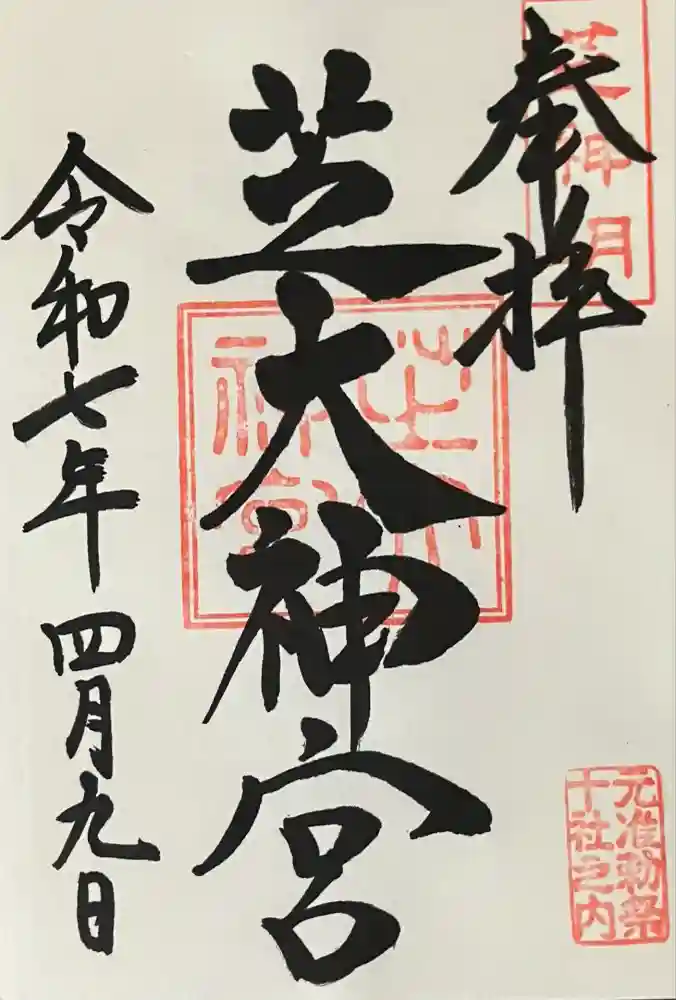 奉拝
芝大神宮
令和七年四月九日
芝神明
芝大神宮
元准勅祭
十社之内